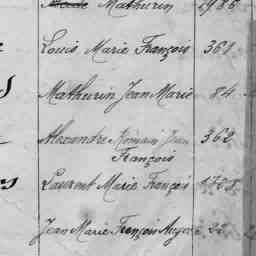 Mathurin 1986
Louis Marie François 361
Mathurin Jean Marie 84
Alexandre Romain Jean 362
François
Laurent Marie François 1708
Jean Marie François